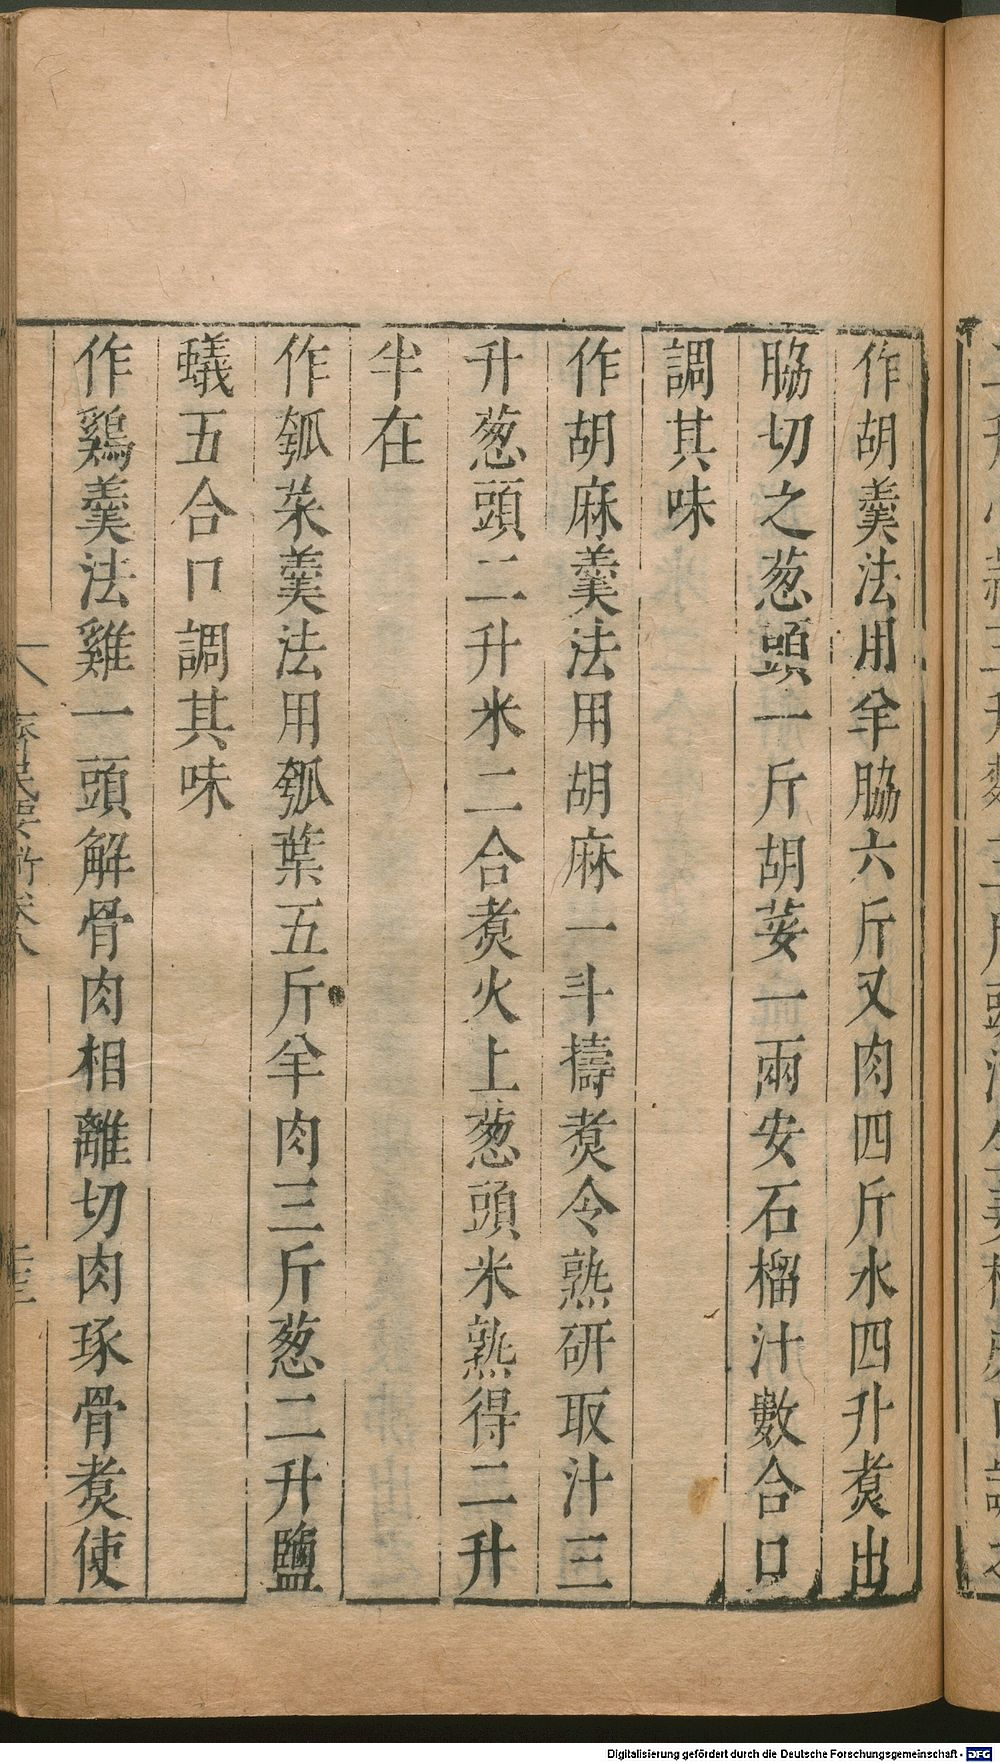 作胡羹法用羊脇六斤又肉四斤水四升煮出
脇切之葱頭一斤胡荽一兩安石榴汁數合口
調其味
作胡麻羹法用胡麻一斗擣煮令熟研取汁三
升葱頭二升米二合煮火上葱頭米熟得二升
半在
作瓠菜羹法用瓠葉五斤羊肉三斤葱二升鹽
蟻五合口調其味
作鷄羹法雞一頭解骨肉相離切肉琢骨煮使
齊民要術卷八
Digitalisierung gefördert durch die Deutsche Forschungsgemeinschaft - DFG